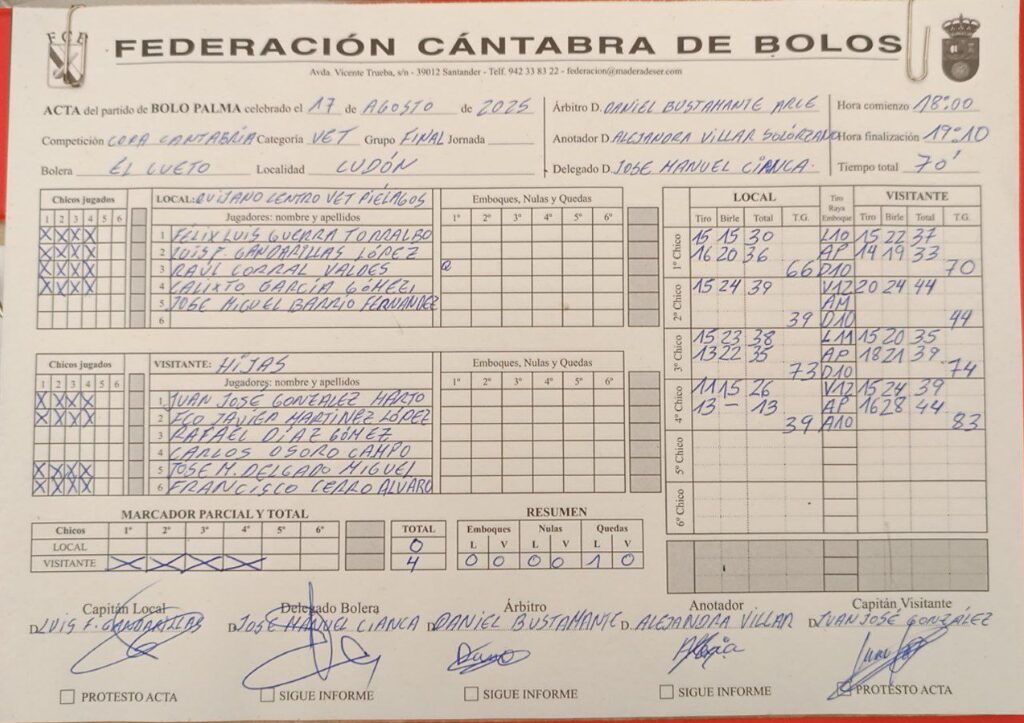 FCB
FEDERACIÓN CÁNTABRA DE BOLOS
Avda. Vicente Trueba, s/n - 39012 Santander - Telf. 942 33 83 22 - federacion@maderadeser.com
ACTA del partido de BOLO PALMA celebrado el 17 de AGOSTO de 2025
Competición COPA CANTABRIA Categoría VET Grupo FINAL Jornada
Bolera EL CUETO Localidad CUDÓN
Árbitro D. DANIEL BUSTAMANTE ARCE
Anotador D. ALEJANDRA VILLAR SOLÓRZANO
Delegado D. JOSE MANUEL CIANCA.
Hora comienzo 18:00
Hora finalización 19:10
Tiempo total 70'
Chicos jugados
1 2 3 4 5 6
X X X X
X X X X
X X X X
X X X X
LOCAL: QUIJANO CENTRO VET PIÉLAGOS
Jugadores: nombre y apellidos
1 FELIX LUIS GUERRA TORRALBO
2 LUIS F. GANDARILLAS LÓPEZ
3 RAÚL CORRAL VALDES
4 CALIXTO GARCÍA GÓMEZ
5 JOSE MIGUEL BARRIO FERNANDEZ
6
Emboques, Nulas y Quedas
1º 2º 3º 4º 5º 6º
Q
Chicos jugados
1 2 3 4 5 6
X X X X
X X X X
X X X X
X X X X
VISITANTE: HIJAS
Jugadores: nombre y apellidos
1 JUAN JOSE GONZALEZ MARTO
2 FCO JAVIER MARTINEZ LÓPEZ
3 RAFAEL DÍAZ GÓMEZ
4 CARLOS OSORO CAMPO
5 JOSE M. DELGADO MIGUEL
6 FRANCISCO CERRO ALVARO
Emboques, Nulas y Quedas
1º 2º 3º 4º 5º 6º
LOCAL Tiro Raya Emboque VISITANTE
Tiro Birle Total T.G. Tiro Birle Total T.G.
1º Chico
15 15 30 L10 15 22 37
16 20 36 AP 14 19 33
66 D10 70
2º Chico
15 24 39 V12 20 24 44
AM
39 D10 44
3º Chico
15 23 38 L11 15 20 35
13 22 35 AP 18 21 39
73 D10 74
4º Chico
11 15 26 V12 15 24 39
13 - 13 AP 16 28 44
39 A10 83
5º Chico
6º Chico
MARCADOR PARCIAL Y TOTAL
Chicos 1º 2º 3º 4º 5º 6º TOTAL
LOCAL 0
VISITANTE X X X X 4
RESUMEN
Emboques Nulas Quedas
L V L V L V
0 0 0 0 1 0
Capitán Local
D. LUIS F. GANDARILLAS
Delegado Bolera
D. JOSE MANUEL CIANCA
Árbitro
D. DANIEL BUSTAMANTE
Anotador
D. ALEJANDRA VILLAR
Capitán Visitante
D. JUAN JOSÉ GONZÁLEZ
PROTESTO ACTA
SIGUE INFORME
SIGUE INFORME
SIGUE INFORME
PROTESTO ACTA